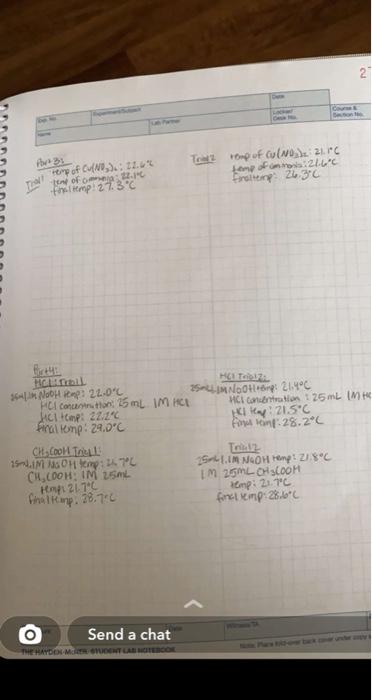 27
Date
Exp. No.
Experiment/Subject
Name
Lab Partner
Locker/
Desk No.
Course &
Section No.
Part 3:
Trial 1 temp of Cu(NO3)2: 22.6°C
temp of ammonia: 22.1°C
final temp: 27.3°C
Trial 2 temp of Cu(NO3)2: 21.1°C
temp of ammonia: 21.6°C
final temp: 26.3°C
Part 4:
HCl: Trial 1
NaOH temp: 22.0°C
HCl concentration: 25 mL 1M HCl
HCl temp: 22.2°C
final temp: 29.0°C
HCl Trial 2:
25mL 1.1M NaOH temp: 21.4°C
HCl concentration: 25 mL 1M
HCl temp: 21.5°C
final temp: 28.2°C
CH3COOH Trial 1:
25mL 1.1M NaOH temp: 21.7°C
CH3COOH: 1M 25mL
temp: 21.7°C
final temp: 28.7°C
Trial 2
25mL 1.1M NaOH temp: 21.8°C
1M 25mL CH3COOH
temp: 21.7°C
final temp: 28.6°C
Send a chat
Date
Witness/TA
THE HAYDEN-McNEIL STUDENT LAB NOTEBOOK
Note: Place fold-over back cover under copy